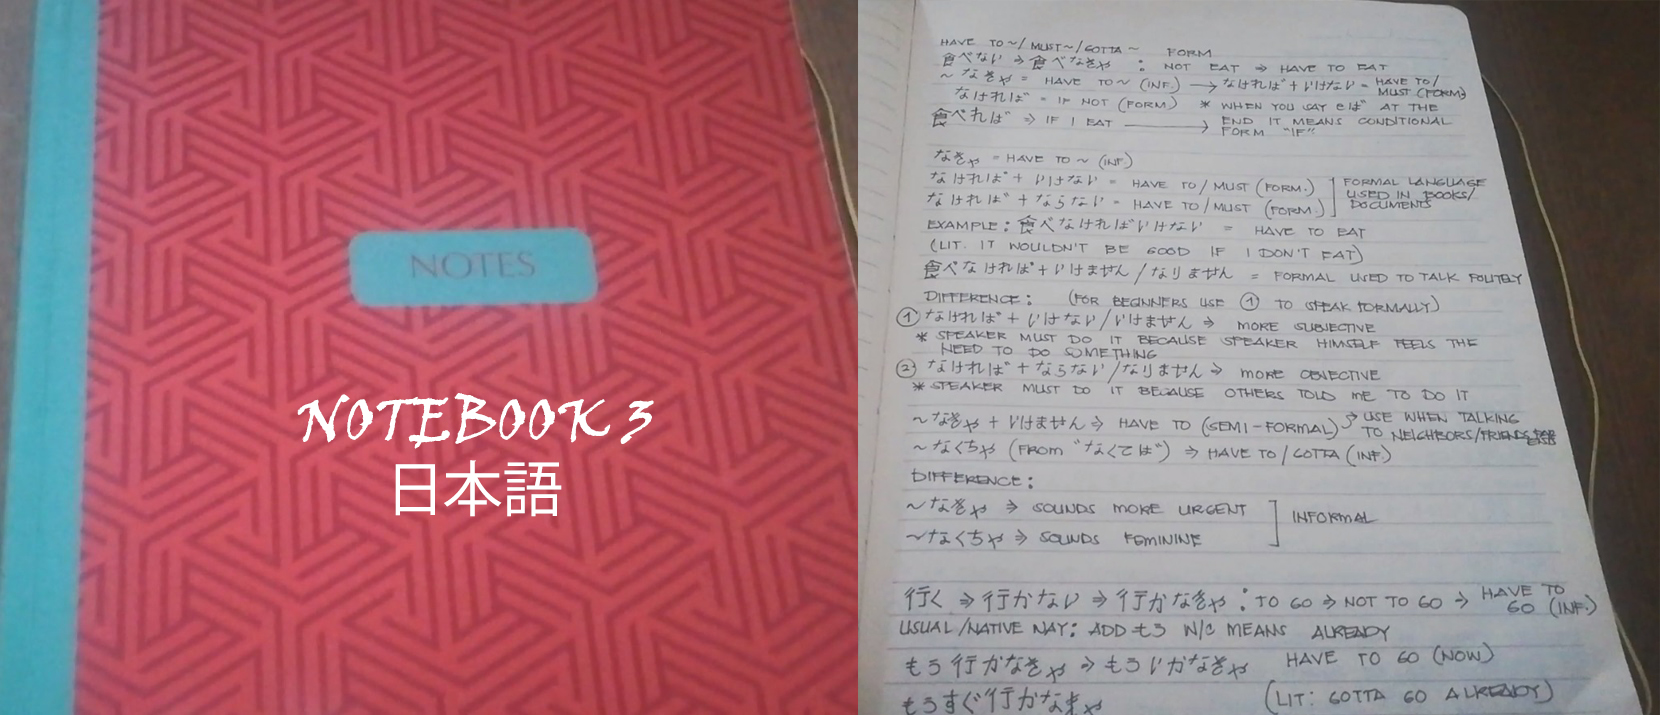 NOTES
NOTEBOOK 3
日本語
HAVE TO ~/ MUST ~/ GOTTA ~ FORM
食べない ⇒ 食べなきゃ : NOT EAT ⇒ HAVE TO EAT
~ なきゃ = HAVE TO ~ (INF.) → なければ + いけない = HAVE TO / MUST (FORM)
なければ = IF NOT (FORM) * WHEN YOU SAY eば AT THE
食べれば ⇒ IF I EAT → END IT MEANS CONDITIONAL FORM "IF"
なきゃ = HAVE TO ~ (INF)
なければ + いけない = HAVE TO / MUST (FORM.)
なければ + ならない = HAVE TO / MUST (FORM.)
FORMAL LANGUAGE
USED IN BOOKS/
DOCUMENTS
EXAMPLE: 食べなければいけない = HAVE TO EAT
(LIT. IT WOULDN'T BE GOOD IF I DON'T EAT)
食べなければ + いけません / なりません = FORMAL USED TO TALK POLITELY
DIFFERENCE: (FOR BEGINNERS USE ① TO SPEAK FORMALLY)
① なければ + いけない / いけません ⇒ MORE SUBJECTIVE
* SPEAKER MUST DO IT BECAUSE SPEAKER HIMSELF FEELS THE
NEED TO DO SOMETHING
② なければ + ならない / なりません ⇒ MORE OBJECTIVE
* SPEAKER MUST DO IT BECAUSE OTHERS TOLD ME TO DO IT
~ なきゃ + いけません ⇒ HAVE TO (SEMI-FORMAL) → USE WHEN TALKING
TO NEIGHBORS/FRIENDS
~ なくちゃ (FROM "なくては") ⇒ HAVE TO / GOTTA (INF.)
DIFFERENCE:
~ なきゃ ⇒ SOUNDS MORE URGENT
~ なくちゃ ⇒ SOUNDS FEMININE
INFORMAL
行く ⇒ 行かない ⇒ 行かなきゃ : TO GO ⇒ NOT TO GO ⇒ HAVE TO GO (INF.)
USUAL / NATIVE WAY: ADD もう W/C MEANS ALREADY
もう行かなきゃ ⇒ もういかなきゃ HAVE TO GO (NOW)
もうすぐ行かなきゃ (LIT: GOTTA GO ALREADY)